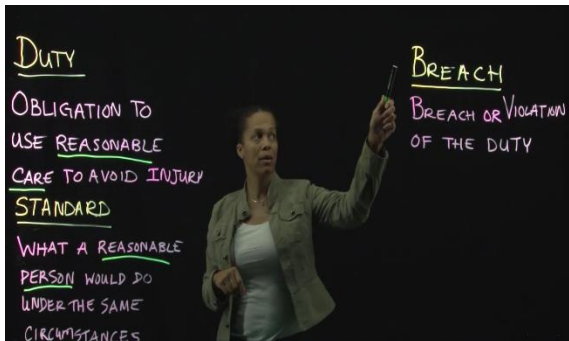 DUTY
OBLIGATION TO
USE REASONABLE
CARE TO AVOID INJURY
STANDARD
WHAT A REASONABLE
PERSON WOULD DO
UNDER THE SAME
CIRCUMSTANCES
BREACH
BREACH OR VIOLATION
OF THE DUTY